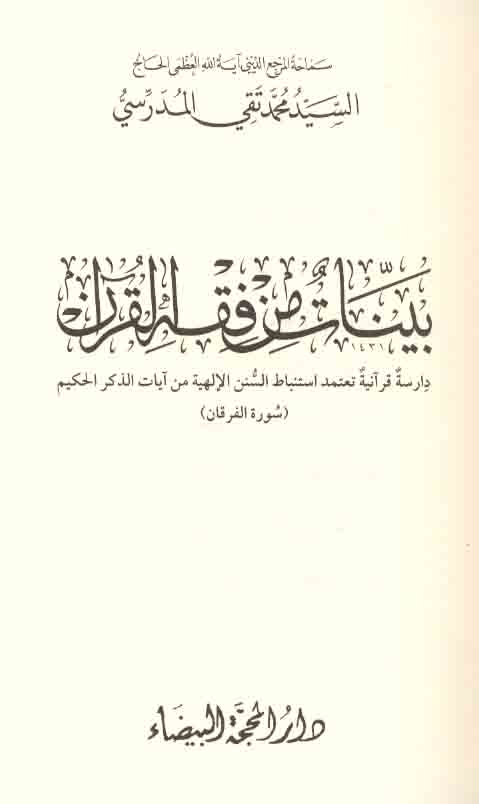 سماحة المرجع الديني آية الله العظمى الحاج
السيد محمد تقي المدرسي
بينات من فقه القرآن
١٤٣١
دارسة قرآنية تعتمد استنباط السنن الإلهية من آيات الذكر الحكيم
(سورة الفرقان)
دار المحجة البيضاء